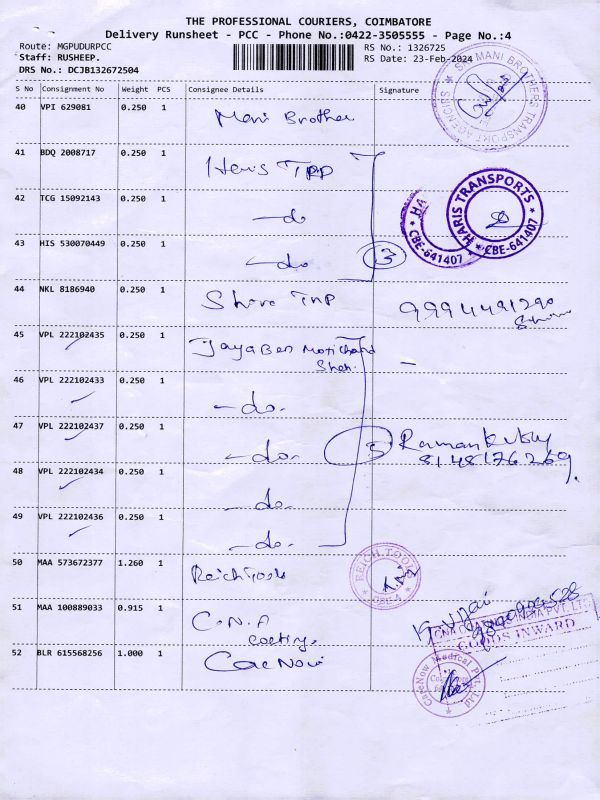 THE PROFESSIONAL COURIERS, COIMBATORE
Delivery Runsheet - PCC - Phone No.:0422-3505555 - Page No.:4
Route: MGPUDURPCC RS No.: 1326725
Staff: RUSHEEP. RS Date: 23-Feb-2024
DRS No.: DCJB132672504
S No Consignment No Weight PCS Consignee Details Signature
40 VPI 629081 0.250 1 Mani Brother
MANI BROTHERS TRANSPORT AGENCIES
41 BDQ 2008717 0.250 1 Haris TPP
42 TCG 15092143 0.250 1 -do
HARIS TRANSPORTS * CBE-641407 *
HA * CBE-641407 *
43 HIS 530070449 0.250 1 -do. 3
44 NKL 8186940 0.250 1 Shiva TNP 9994491290
45 VPL 222102435 0.250 1 Jayaben Motichand
Shah. -
46 VPL 222102433 0.250 1 -do.
47 VPL 222102437 0.250 1 -do. 5
8148176269.
48 VPL 222102434 0.250 1 -do.
49 VPL 222102436 0.250 1 -do.
50 MAA 573672377 1.260 1 Reich Tools
REICH TOOLS
51 MAA 100889033 0.915 1 C.N.A
coating.
GOODS INWARD
52 BLR 615568256 1.000 1 CareNow
CareNow Medical Pvt. Ltd